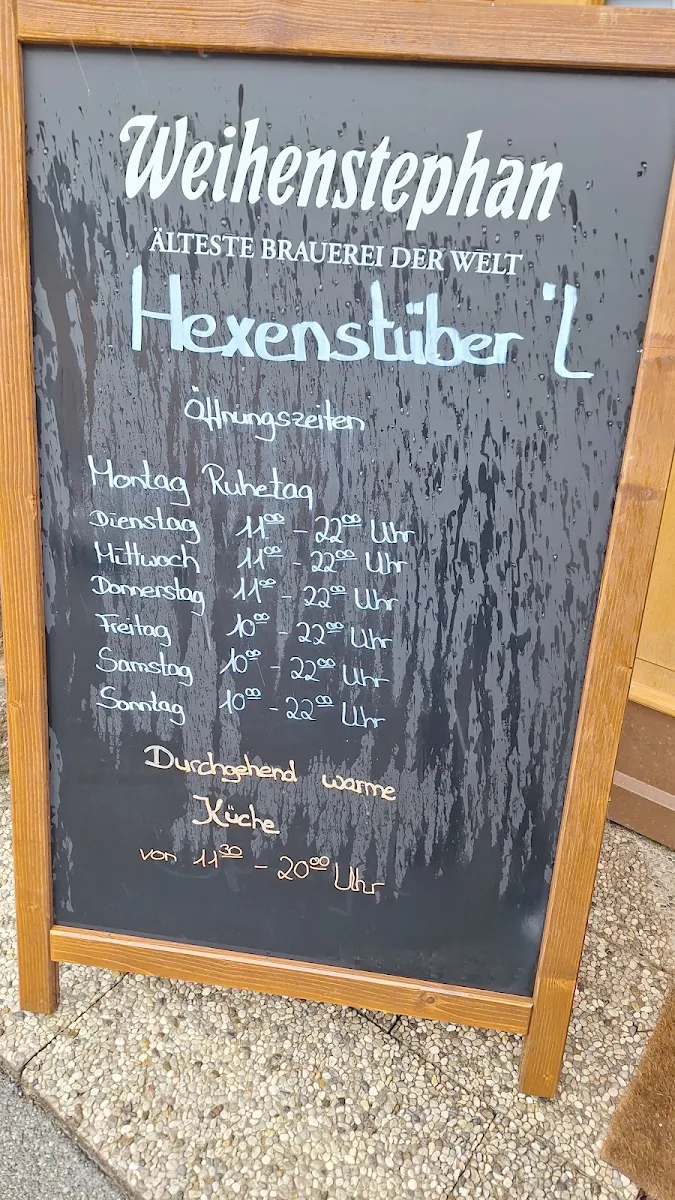 Weihenstephan
ÄLTESTE BRAUEREI DER WELT
Hexenstüber'L
Öffnungszeiten
Montag Ruhetag
Dienstag 11⁰⁰ - 22⁰⁰ Uhr
Mittwoch 11⁰⁰ - 22⁰⁰ Uhr
Donnerstag 11⁰⁰ - 22⁰⁰ Uhr
Freitag 10⁰⁰ - 22⁰⁰ Uhr
Samstag 10⁰⁰ - 22⁰⁰ Uhr
Sonntag 10⁰⁰ - 22⁰⁰ Uhr
Durchgehend warme
Küche
von 11³⁰ - 20⁰⁰ Uhr